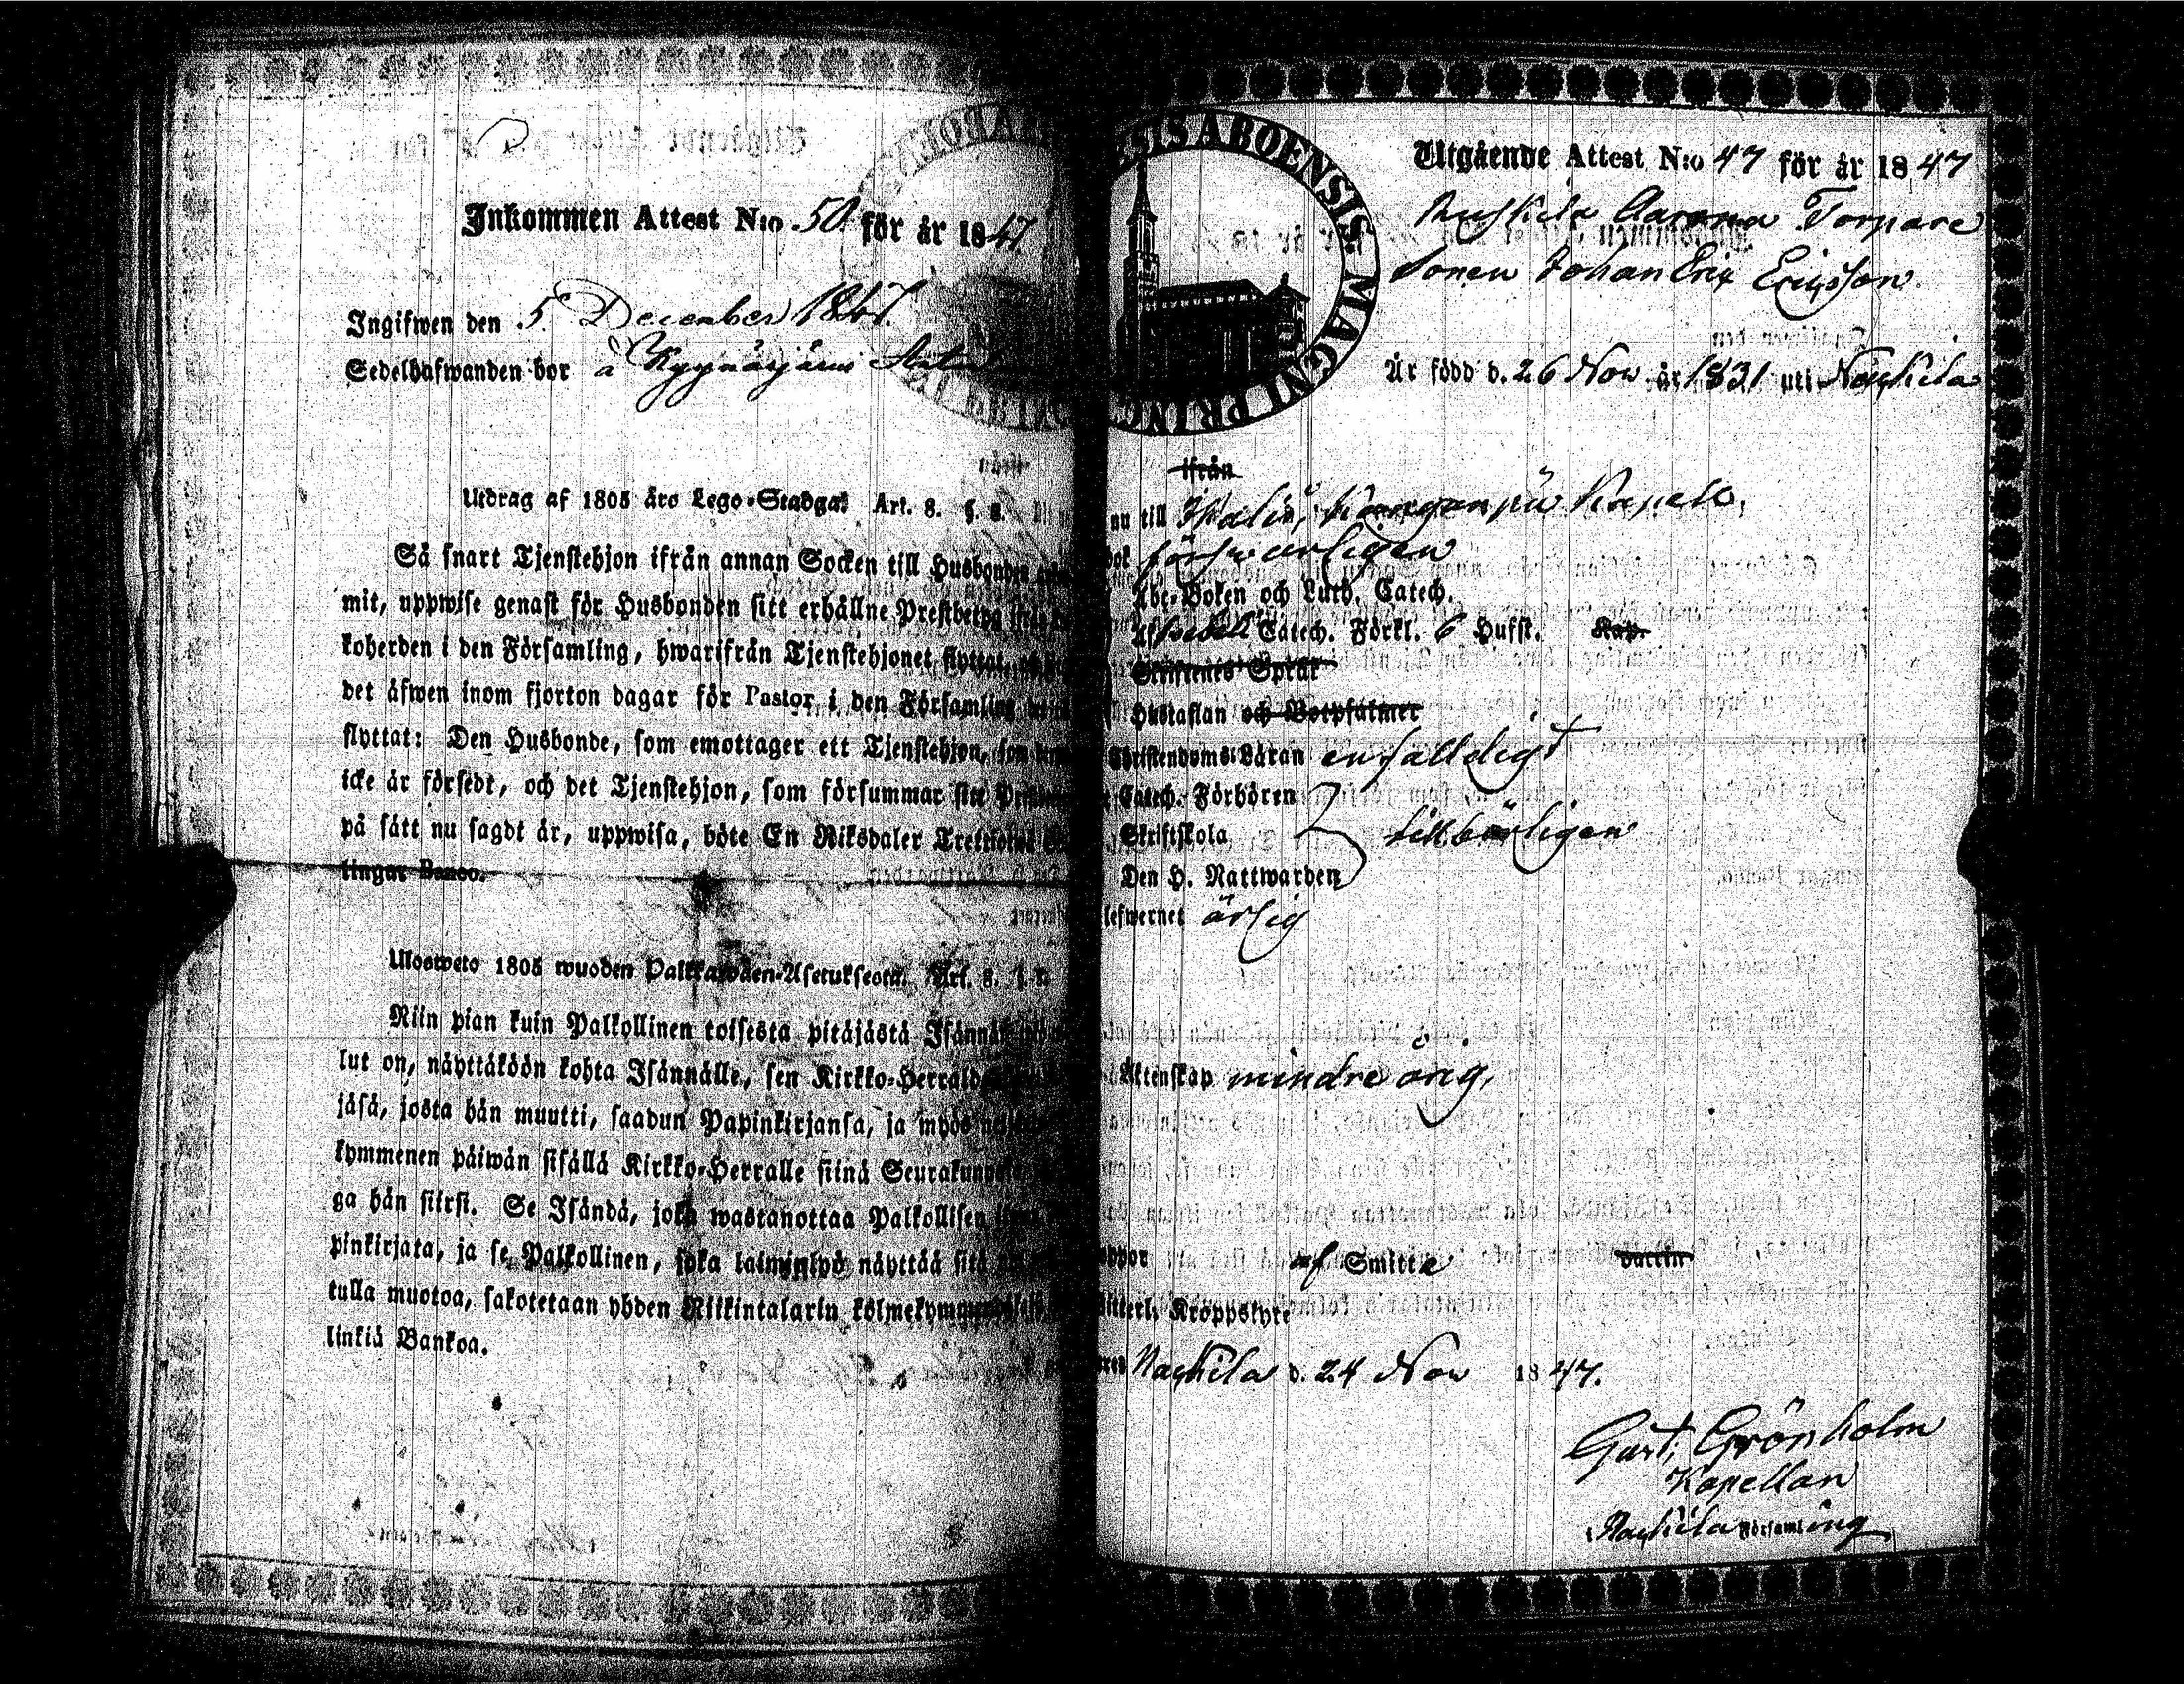 Inkommen Attest N:o 50 för år 1847
Ingifwen den 5 December 1847.
Sedelhafwanden bor å Kyynärjärvi
Utdrag af 1805 års Lego-Stadga: Art. 8. §. 8.
Så snart Tjenstehjon ifrån annan Socken till Husbonden
mit, uppwise genast för Husbonden sitt erhållne Prestbetyg
koherden i den Församling, hwarifrån Tjenstehjonet flyttat,
det äfwen inom fjorton dagar för Pastor i den Församling
flyttat: Den Husbonde, som emottager ett Tjenstehjon, som
icke är försedt, och det Tjenstehjon, som försummar sitt
på sätt nu sagdt är, uppwisa, böte En Riksdaler Trettiotvå
lingar Banco.
Ulosweto 1805 wuoden Palkkawäen-Asetuksesta. Art. 8. §.
Niin pian kuin Palkollinen toisesta pitäjästä Isännän
lut on, näyttäköön kohta Isännälle, sen Kirkko-Herralda
jäsä, josta hän muutti, saadun Papinkirjansa, ja myös
kymmenen päiwän sisällä Kirkko-Herralle siinä Seurakunnasa
ga hän siirsi. Se Isändä, joka wastanottaa Palkollisen
pinkirjata, ja se Palkollinen, joka laiminlyö näyttää sitä
tulla muotoa, sakotetaan yhden Riikintalarin kolmekymmentä
linkiä Bankoa.
SIS ABOENSIS MAGNI PRINC
Utgående Attest N:o 47 för år 1847
Torpare
Sonen Johan Eric Ericsson
Är född d. 26 Nov. år 1831 uti Naykila
ifrån
nu till Kapell,
bok försvarligen
Abc-Boken och Luth. Catech.
Catech. Förkl. 6 Hufst. Kap.
Skriftenes Språk
Hustaflan och Botpsalmer
Christendoms Läran enfalldigt
Catech. Förhören
Skriftskola tillbörligen
Den H. Nattwarden
lefwernet ärlig
Äktenskap mindre årig,
koppor af Smitta
Kroppslyte
Naykila d. 24 Nov 1847.
Gust. Grönholm
Kapellan
Naykila Församling